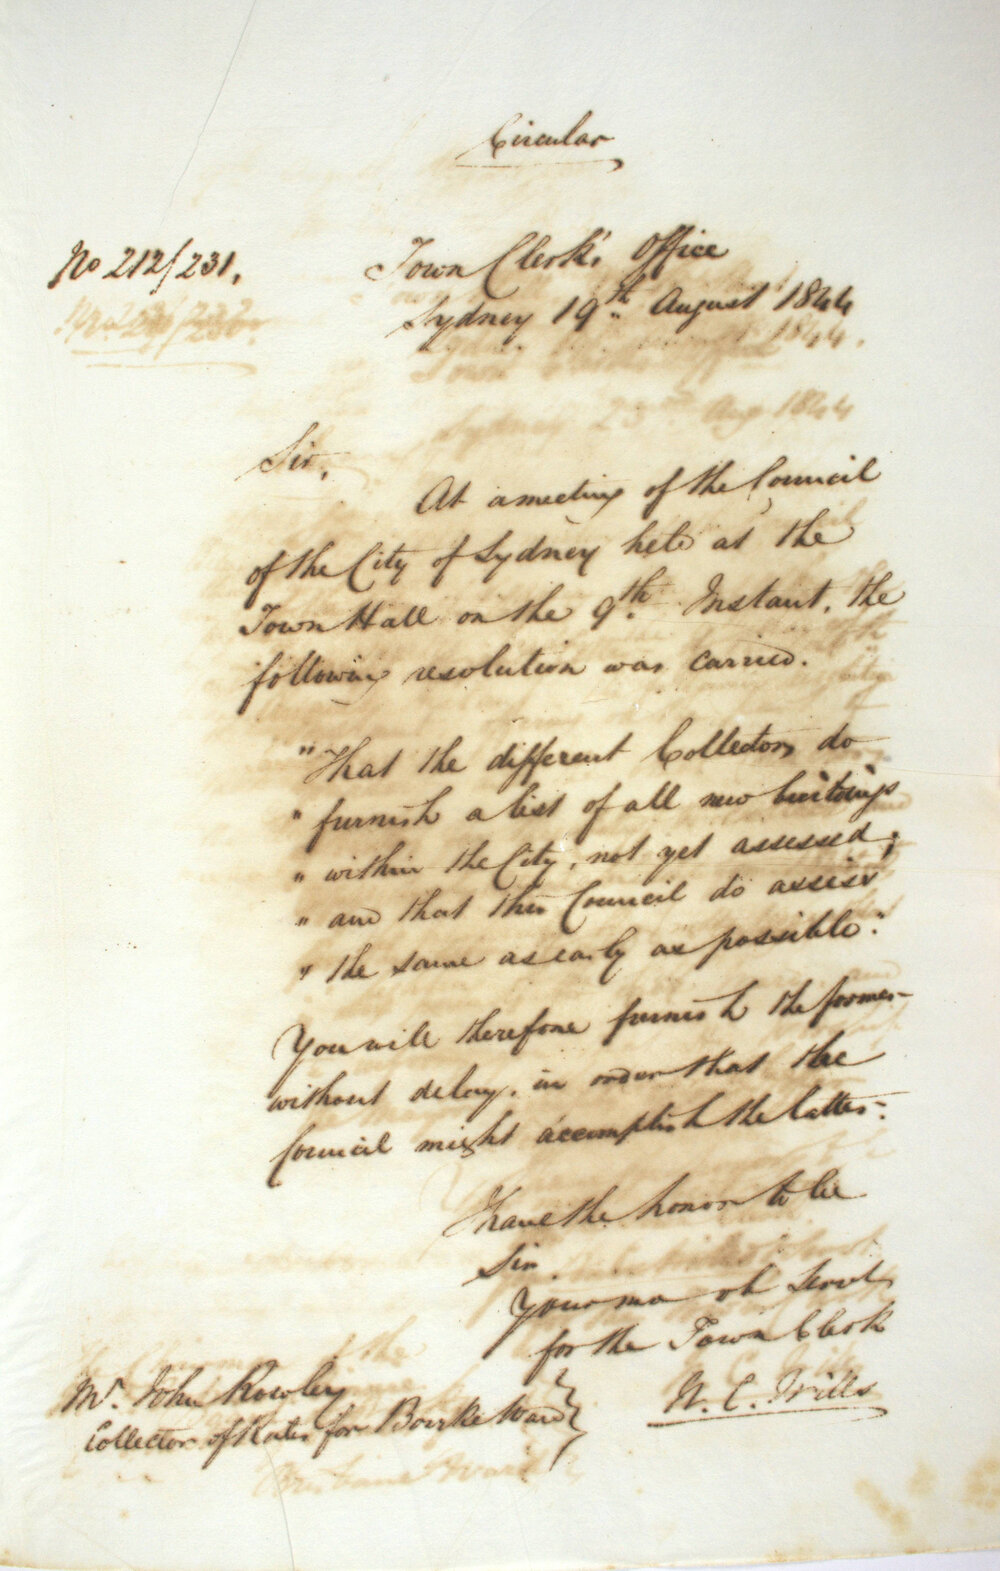 Circular
No 212/231.
Town Clerk's Office
Sydney 19th August 1844
Sir,
At a meeting of the Council
of the City of Sydney held at the
Town Hall on the 9th Instant, the
following resolution was carried.
"That the different Collectors do
" furnish a list of all new buildings
" within the City, not yet assessed;
" and that this Council do assess
" the same as early as possible."
You will therefore furnish the former
without delay, in order that the
Council might accomplish the latter.
I have the honor to be
Sir
Your mo ob Servt
for the Town Clerk
Mr. John Rowley
Collector of Rates for Bourke Ward